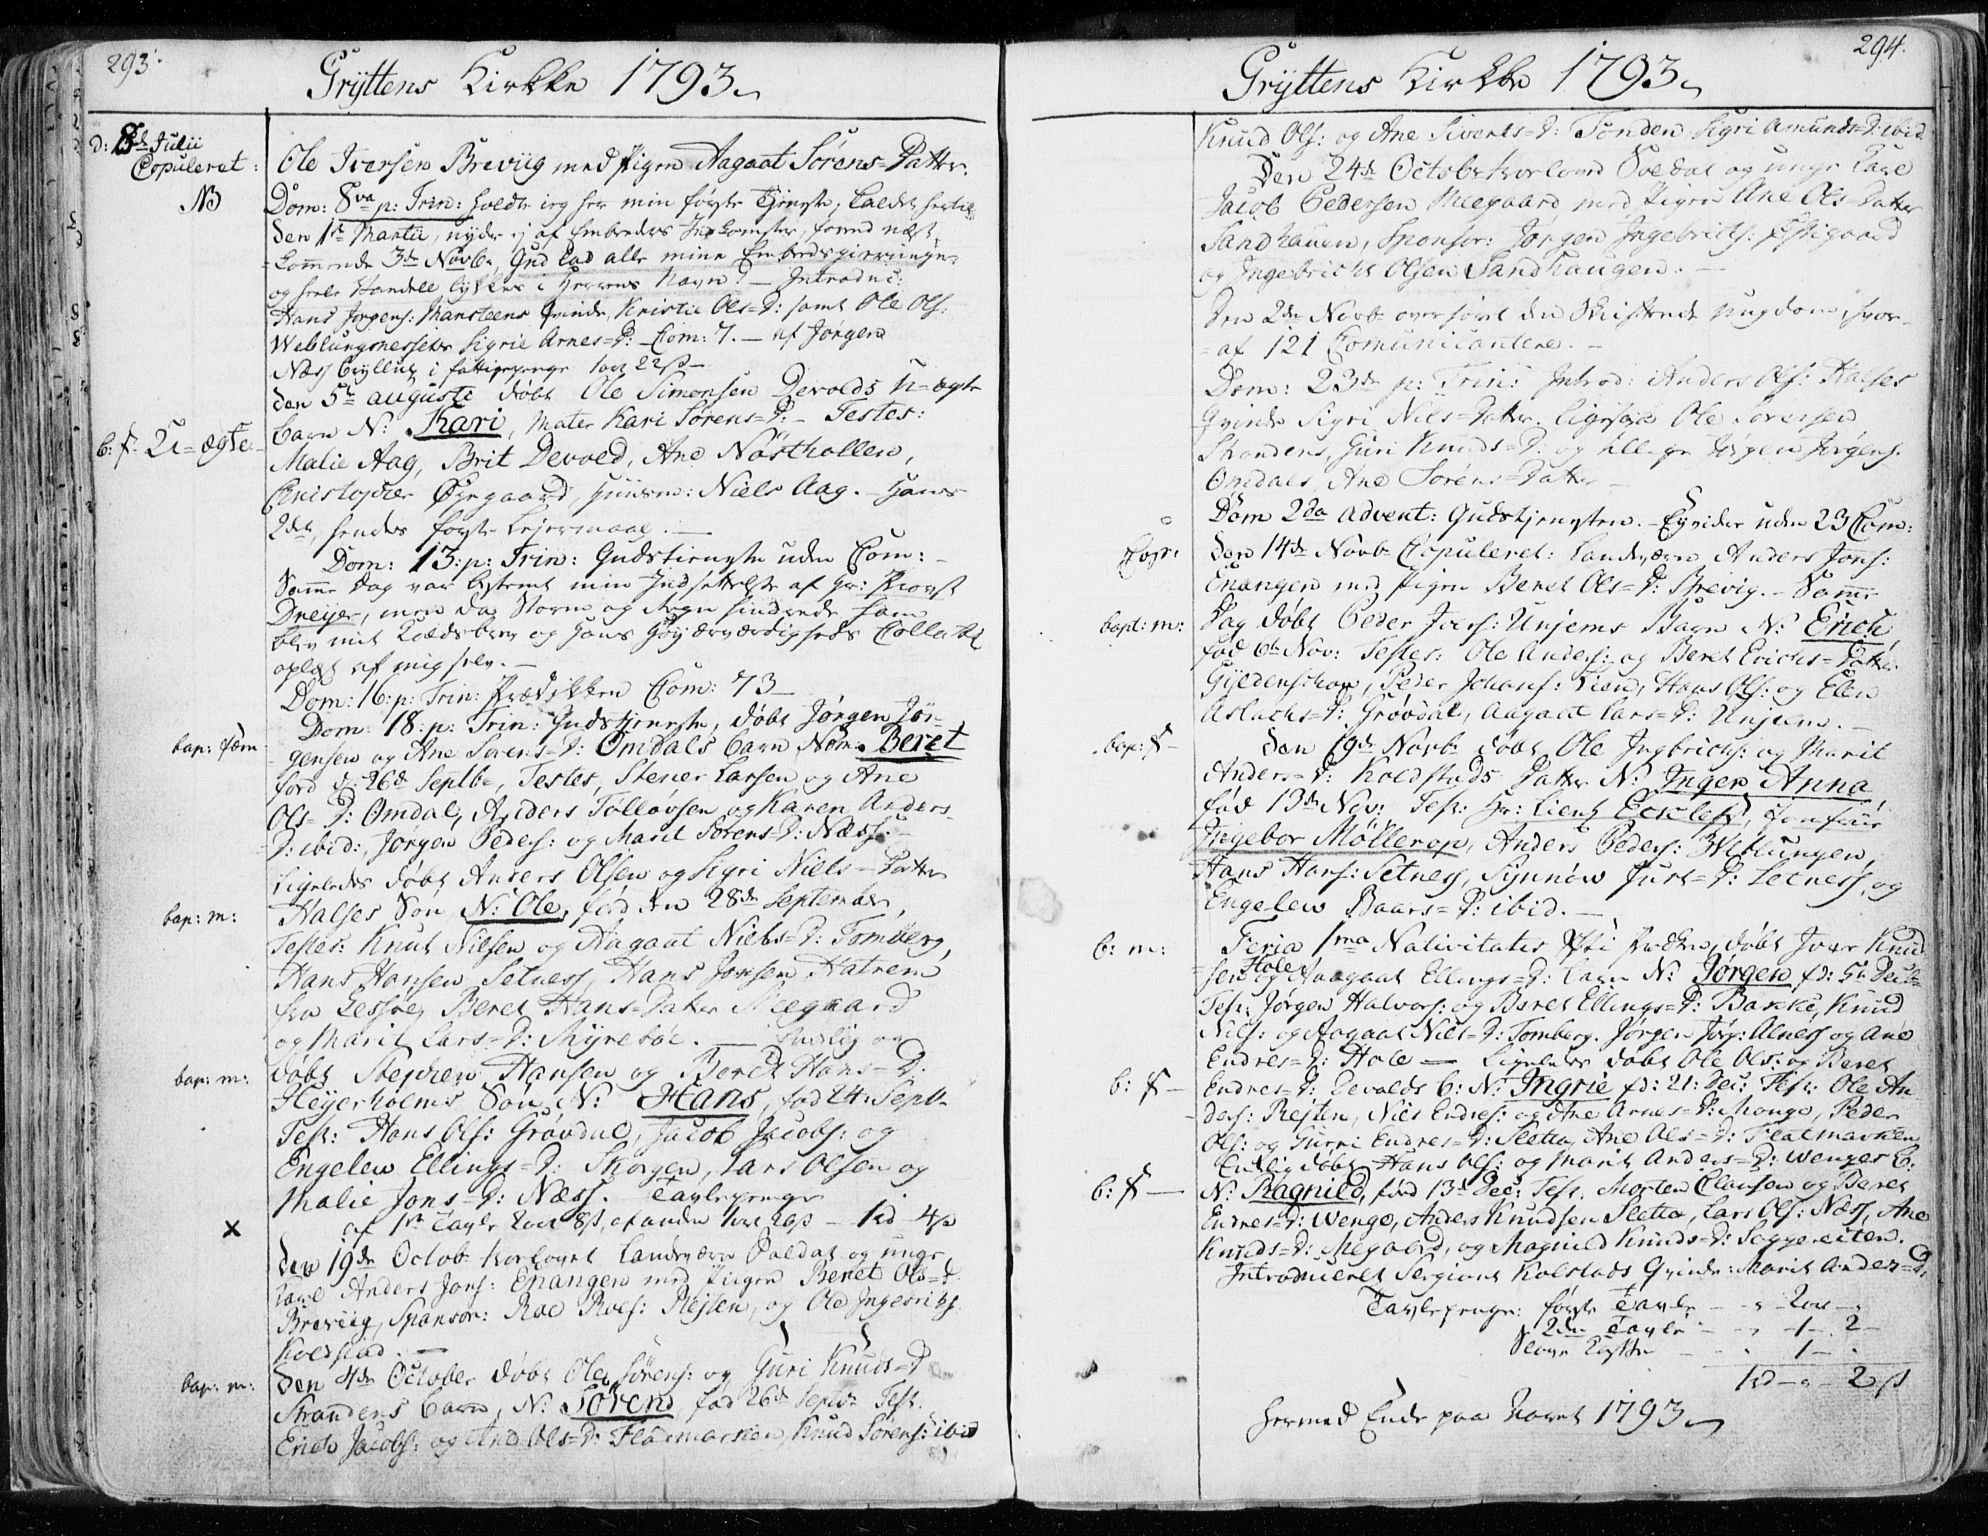 293.
Gryttens Kirkke 1793.
d: 8de Julii
Copuleret: Ole Iversen Breviig med Pigen Aagaat Sørens=Datter.
NB Dom: 8va p: Trin: holdte ieg her min første Tjeneste, kaldet hertil
den 1ste Martii, nyder ej af Embedets Indkomster, førend næst
kommende 3de Novbr. Gud lad alle mine Embedsgierninger
og heele Handell lykkes i Herrens Navn! — Introduc:
Hans Jørgens: Mansteens Qvinde, Kristie Ols=D: samt Ole Ols:
Weblungsnessets Sigrie Arnes=D: Com: 7. — af Jørgen
Næss Bryllup i fattigepenge 22 ß —
den 5te augusti døbt Ole Simonsen Devolds U=ægte
b: f. U=ægte barn N: Kari, Mater Kari Sørens=D: — Testes:
Malie Aag, Brit Devold, Ane Nøsthollen,
Christopher Øregaard, Niels Aag. — Hans
2det, hendes første Lejermaal. —
Dom: 13: p: Trin: Gudstieneste uden Com: —
Samme Dag var bestemt min Indsettelse af Hr: Provst
Dreyer, men da Storm og Regn hindrede ham
blev mit Kaldsbrev og Hans Høyærværdigheds Collatz
oplæst af mig selv. —
Dom: 16: p: Trin: Prædikken Com: 73 —
Dom: 18: p: Trin: Gudstjeneste, døbt Jørgen Jør-
bap: fæm gensen og Ane Sørens=D: Omdals barn Nom: Beret
førd d: 26de Septbr, Testes, Stener Larsen og Ane
Ols=D: Omdal, Anders Tolløvsen og Karen Anders
D: ibid:, Jørgen Peders: og Marit Sørens=D: Næss: —
Ligeledes døbt Anders Olsen og Sigri Niels=Datter
bap: m: Halses Søn, N: Ole, førd den 28de September,
Testes: Knut Nilsen og Aagaat Niels=D: Tomberg,
Hans Hansen Setness, Hans Jonsen Hatrem
fra Lessøe, Beret Hans=Dater Meegaard
og Marit Lars=D: Myrebøe. — Endelig og
bap: m: døbt Stephen Hansen og Beret Hans=D:
Heyerholms Søn, N: Hans, fød 24: Septb.
Test: Hans Ols: Grøvdal, Jacob Jacobs: og
Engelev Ellings=D: Skorgen, Lars Olsen og
Malie Jons=D: Næss. Tavlepenge
× af 1ste Tavle 8ß, af anden 20ß — 1rd — 4ß
den 19de Octob. trolovet Landværn Soldat og unge
Karl Anders Jons: Enangen med Pigen Beret Ols=D:
Breviig, Sponsor: Roe Roes: Rejten, og Ole Ingebrits:
Kolstad. —
bap: m: Den 4de October døbt Ole Sørens: og Guri Knuds=D
Strandens barn, N: Søren, fød 26de Septb. Test.
Erich Jacobs: og Ane Ols=D: Flatmarken, Knud Sørens: ibid
294.
Gryttens Kirkke 1793.
Knud Ols: og Ane Siverts=D: Tonden Sigri Amunds=D: ibid
Den 24de Octobr trolovet Soldat og unge Karl
Jacob Pedersen Meegaard med Pigen Ane Ols=Dater
Sandhauen, Sponsor: Jørgen Ingebrigts:
og Ingebricht Olsen Sandhaugen. —
Den 2de Novbr overhørt den Skriftende ungdom, hvor-
af 121 Comunicantere. —
Dom: 23de p: Trin: Introd: Anders Ols: Halses
Qvinde Sigri Nils=Datter. Ligesaa Ole Sørensen
Strandens, Guri Knuds=D: og Jørgen Jørgens:
Omdals, Ane Sørens=Datter —
Dom 2da Advent: Gudstjenesten. — 23 Com:
Copr: den 14de Novb. Copuleret: Landværn Anders Jons:
Enangen med Pigen Beret Ols=D: Brevig. — Samme
bapt: m: Dag døbt Peder Ivers: Unjems Barn N: Erich,
fød 6te Nov: Testes: Ole Anders: og Beret Erichs=Datter
Gyldenskov, Peder Johans: Lien, Hans Ols: og Elen
Aslachs=D: Grøvdal, Aagaat Lars=D: Unjem. —
bap: f — den 19de Novb. døbt Ole Ingbrichs: og Marit
Anders=D: Kolstads Datter N: Inger Anna
fød 13de Nov: Test: Hr: Lieut Eckleff, Jomfrue
Ingebor Møllerop, Anders Peders: Weblungen,
Hans Hans: Setness, Synnøv Juls=D: Setness, og
Engelev Baars=D: ibid. —
b: m: Feria 1ma Nativitatis Xsti Prædken, døbt Iver Knud
sen Hole og Aagaat Ellings=D: barn N: Jørgen fd: 5te Decb
Test: Jørgen Halvors: og Beret Ellings=D: Bakke, Knud
Nils: og Aagaat Niels=D: Tomberg. Jørgen Jørg: Alness og Ane
Endres=D: Hole — Ligeledes døbt Ole Ols: og Beret
b: f — Endres=D: Devolds b: N: Ingrie fd: 21: Dec: Test: Ole An
ders: Rejten, Niels Endres: og Ane Arnes=D: Monge, Peder
Ols: og Gurri Endres=D: Sletta, Ane Ols=D: Flatmarken
Endelig døbt Hans Ols: og Marit Anders=D: Wenges B:
b: f — N: Ragnild, førd 13de Dec: Test. Morten Clausen og Beret
Endres=D: Wenge, Anders Knudsen Sletta, Lars Ols: Næss, Ane
Knuds=D: Megaard, og Magnild Knuds=D: Soggereiten.
Introduceret Sergiant Kolstads Qvinde: Marit Anders=D,
Tavlepenge: første Tavle — " — 2 — "
2den Tavle — " — 1 — 2 —
— 1 —
1rd — " — 2ß
Hermed Ende paa Aaret 1793.